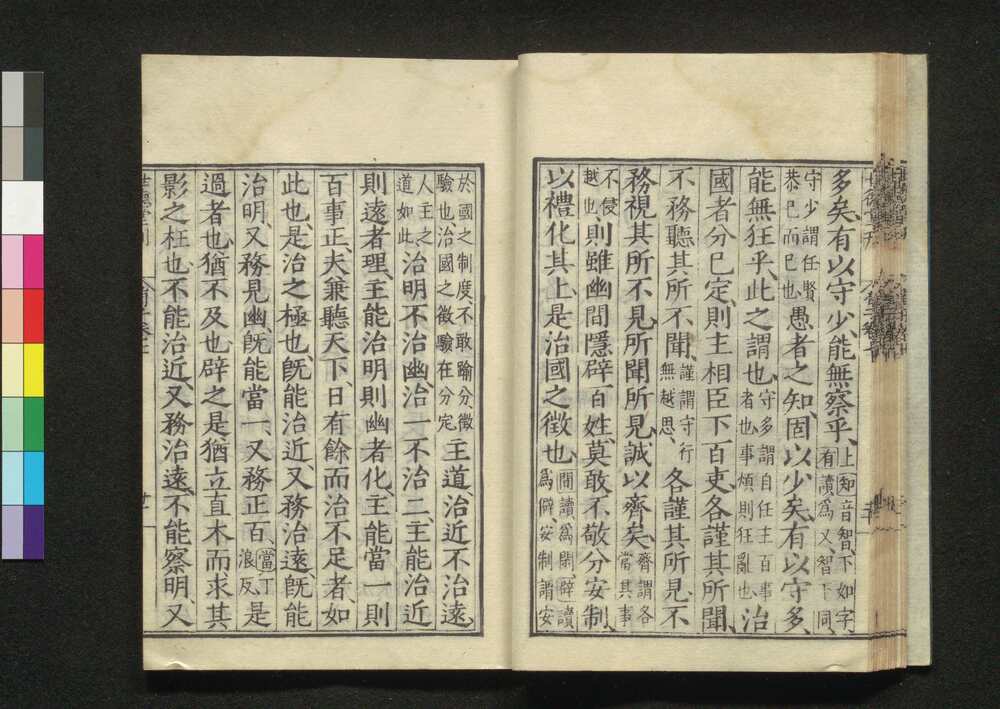 多矣、有以守少、能無察乎、上知音智、下如字有讀爲又、智下同、
守少謂任賢恭己而已也愚者之知、固以少矣、有以守多、
能無狂乎、此之謂也、守多謂自任主百事者也事煩則狂亂也治
國者分已定、則主相臣下百吏、各謹其所聞、
不務聽其所不聞、謹謂守行無越思、各謹其所見、不
務視其所不見、所聞所見、誠以齊矣、齊謂各當其事
不侵越也、則雖幽閒隱辟、百姓莫敢不敬分安制、
以禮化其上、是治國之徵也、閒讀爲閑辟讀爲僻、安制謂安
於國之制度、不敢踰分、徵驗也治國之徵驗在分定主道、治近不治遠、
人主之道如此、治明不治幽、治一不治二、主能治近
則遠者理、主能治明則幽者化、主能當一則
百事正、夫兼聽天下、日有餘而治不足者、如
此也、是治之極也、旣能治近、又務治遠、旣能
治明、又務見幽、旣能當一、又務正百、當丁浪反、是
過者也、猶不及也、辟之是猶立直木而求其
影之枉也、不能治近、又務治遠、不能察明、又